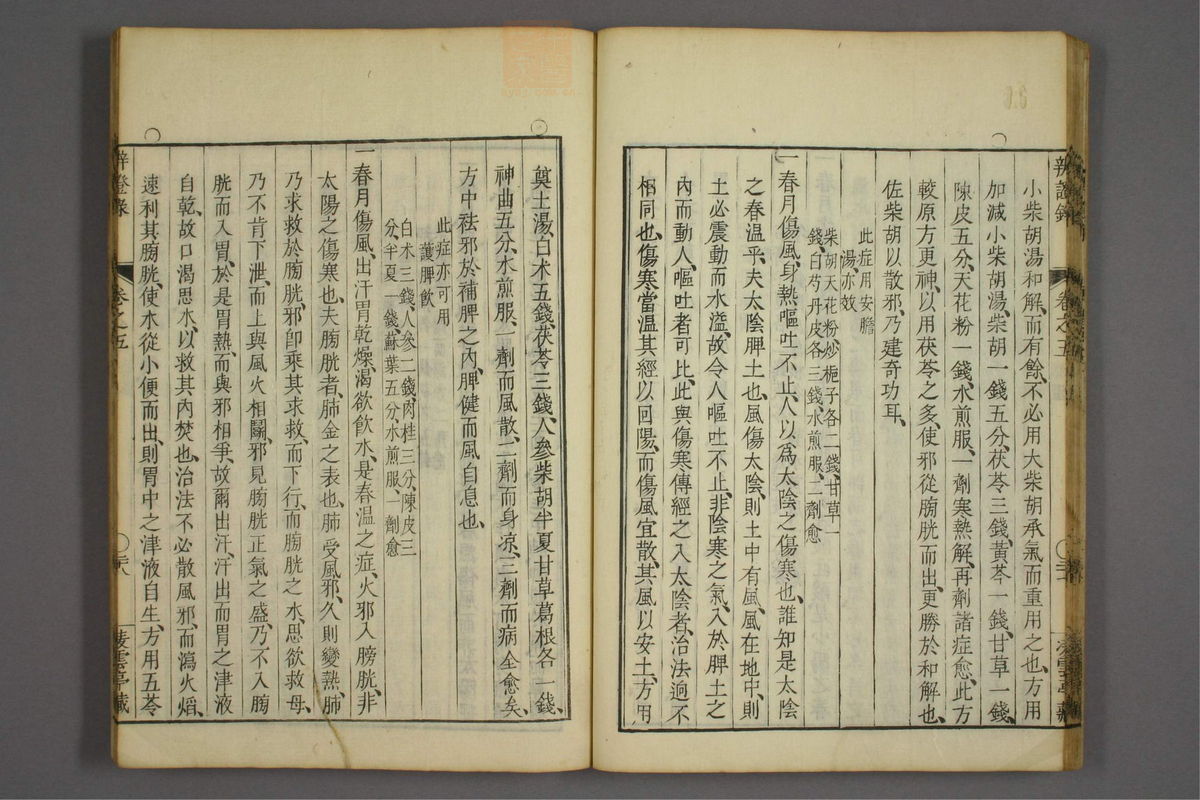 小柴胡湯和解、而有餘、不必用大柴胡承氣而重用之也、方用
加減小柴胡湯、柴胡一錢五分、茯苓三錢、黃芩一錢、甘草一錢、
陳皮五分、天花粉一錢、水煎服、一劑寒熱解、再劑諸症愈、此方
較原方更神、以用茯苓之多、使邪從膀胱而出、更勝於和解也、
佐柴胡以散邪、乃建奇功耳、
此症用安膽
湯亦效
柴胡天花粉炒梔子各二錢、甘草一
錢、白芍丹皮各三錢、水煎服、二劑愈
一春月傷風、身熱嘔吐不止、人以爲太陰之傷寒也、誰知是太陰
之春溫乎、夫太陰脾土也、風傷太陰、則土中有風、風在地中、則
土必震動而水溢、故令人嘔吐不止、非陰寒之氣、入於脾土之
內而動人、嘔吐者可比、此與傷寒傳經之入太陰者、治法迥不
相同也、傷寒當溫其經以回陽、而傷風宜散、其風以安土、方用
奠土湯、白朮五錢、茯苓三錢、人參柴胡半夏甘草葛根各一錢、
神曲五分、水煎服、一劑而風散、二劑而身凉、三劑而病全愈矣、
方中祛邪於補脾之內、脾健而風自息也、
此症亦可用
護脾飮
白朮三錢、人參二錢、肉桂三分、陳皮三
分、半夏一錢、蘇葉五分、水煎服、一劑愈
一春月傷風、出汗胃乾燥、渴欲飮水、是春溫之症、火邪入膀胱、非
太陽之傷寒也、夫膀胱者、肺金之表也、肺受風邪、久則變熱、肺
乃求救於膀胱、邪卽乘其求救、而下行、而膀胱之水、思欲救母、
乃不肯下泄、而上與風火相鬭、邪見膀胱正氣之盛、乃不入膀
胱而入胃、於是胃熱、而與邪相爭、故爾出汗、汗出而胃之津液
自乾、故口渴思水、以救其內焚也、治法不必散風邪、而瀉火熖、
速利其膀胱、使水從小便而出、則胃中之津液自生、方用五苓
辨證錄
卷之五